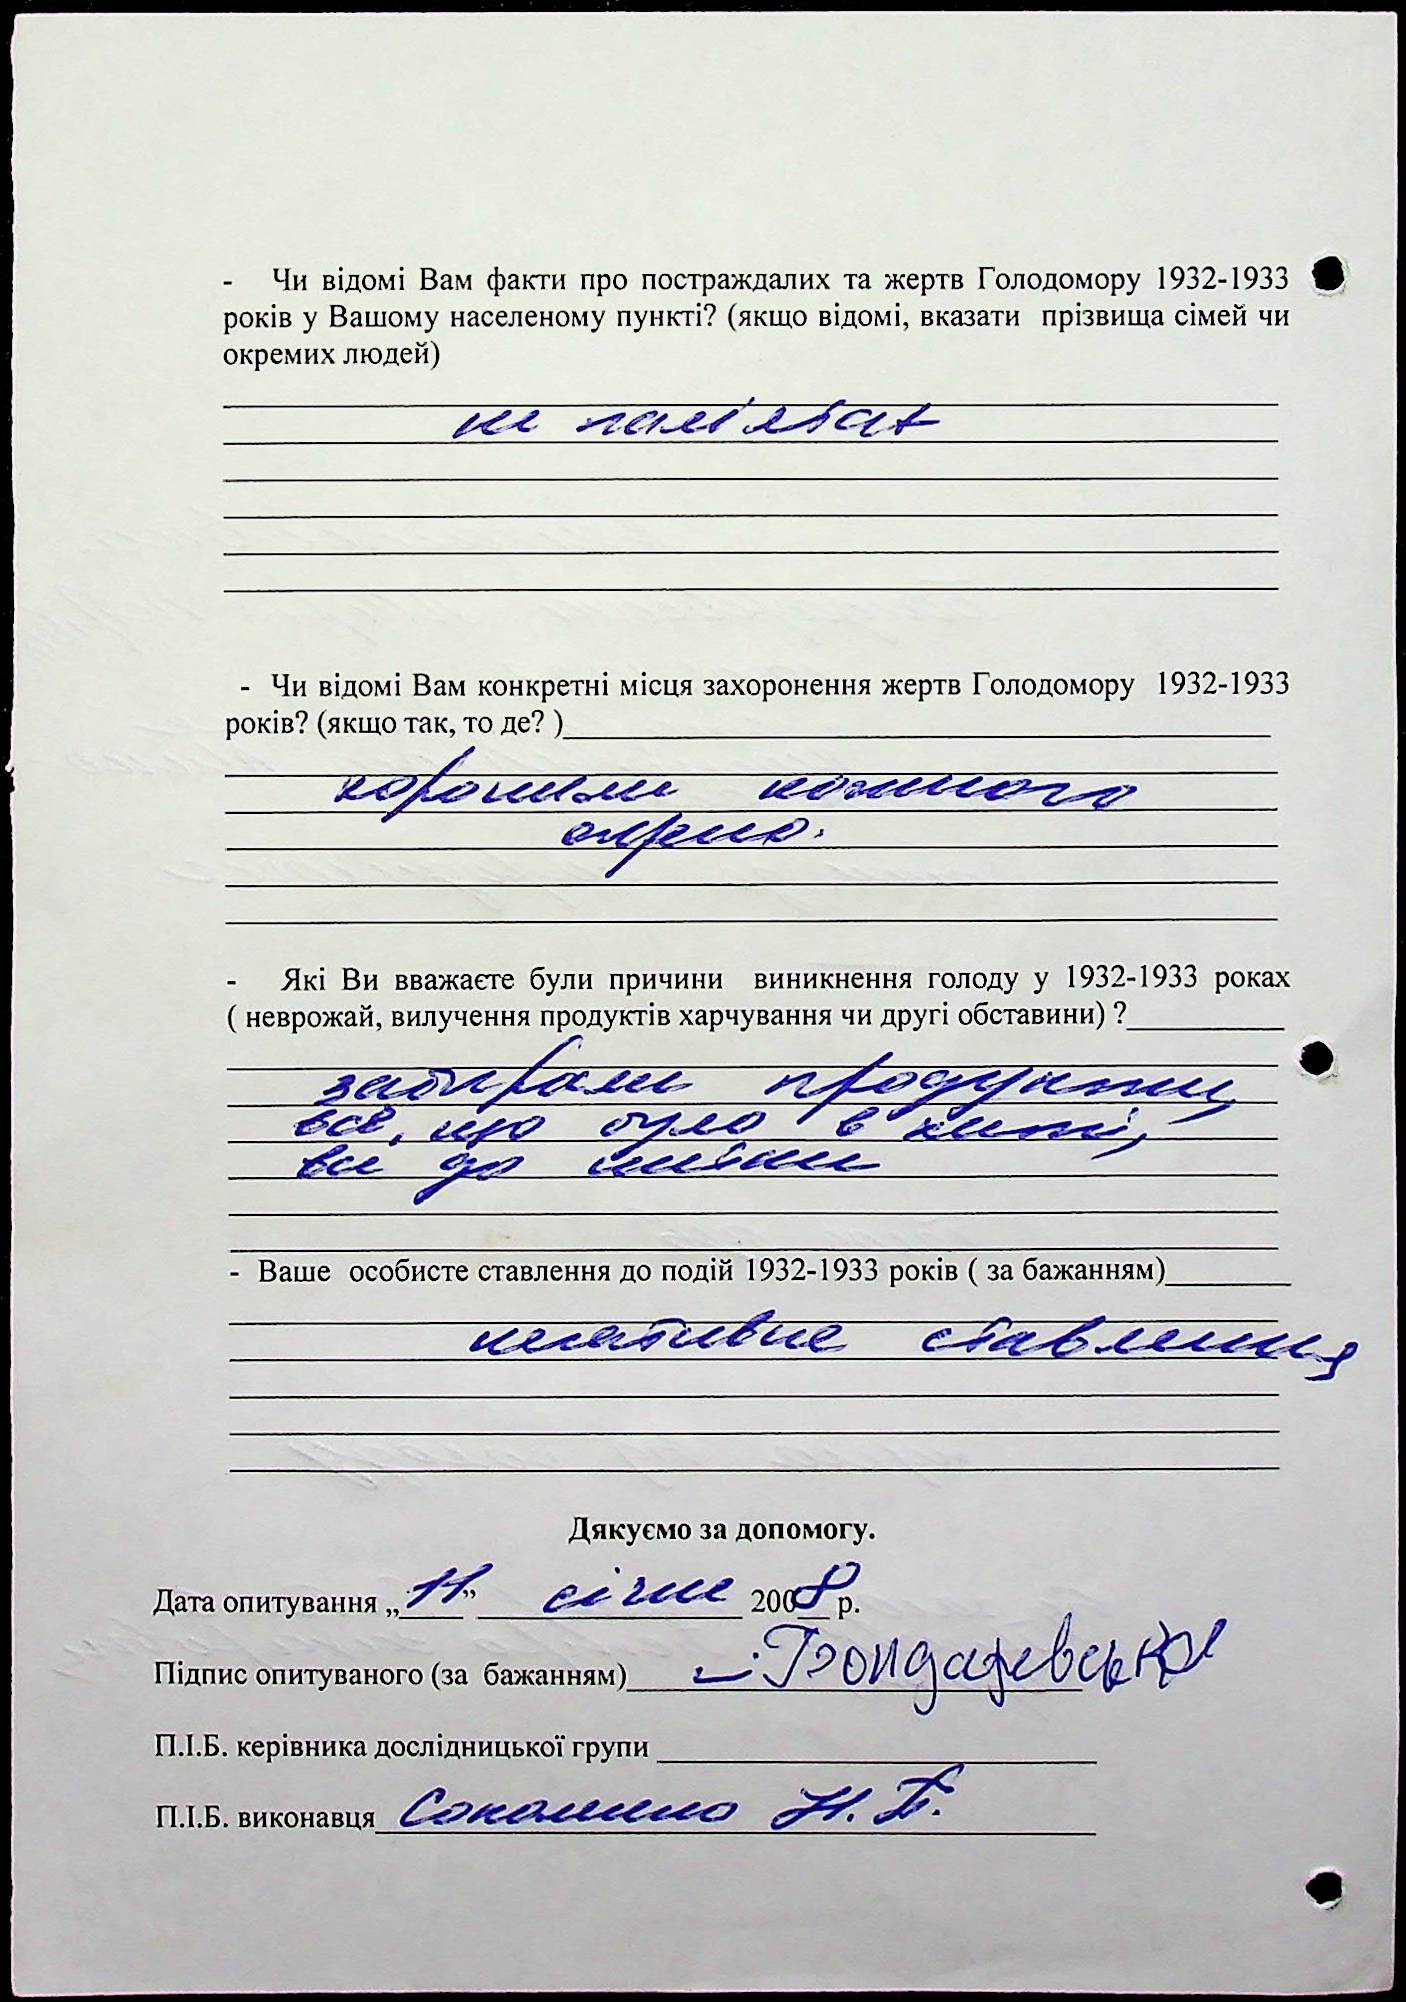 - Чи відомі Вам факти про постраждалих та жертв Голодомору 1932-1933
років у Вашому населеному пункті? (якщо відомі, вказати прізвища сімей чи
окремих людей)
не пам'ятаю
- Чи відомі Вам конкретні місця захоронення жертв Голодомору 1932-1933
років? (якщо так, то де? )
хоронили кожного
окремо.
- Які Ви вважаєте були причини виникнення голоду у 1932-1933 роках
( неврожай, вилучення продуктів харчування чи другі обставини) ?
забирали продукти,
все, що було в хаті,
все до нитки
- Ваше особисте ставлення до подій 1932-1933 років ( за бажанням)
негативне ставлення
Дякуємо за допомогу.
Дата опитування „11” січня 2008 р.
Підпис опитуваного (за бажанням) Бондаревська
П.І.Б. керівника дослідницької групи
П.І.Б. виконавця Н.